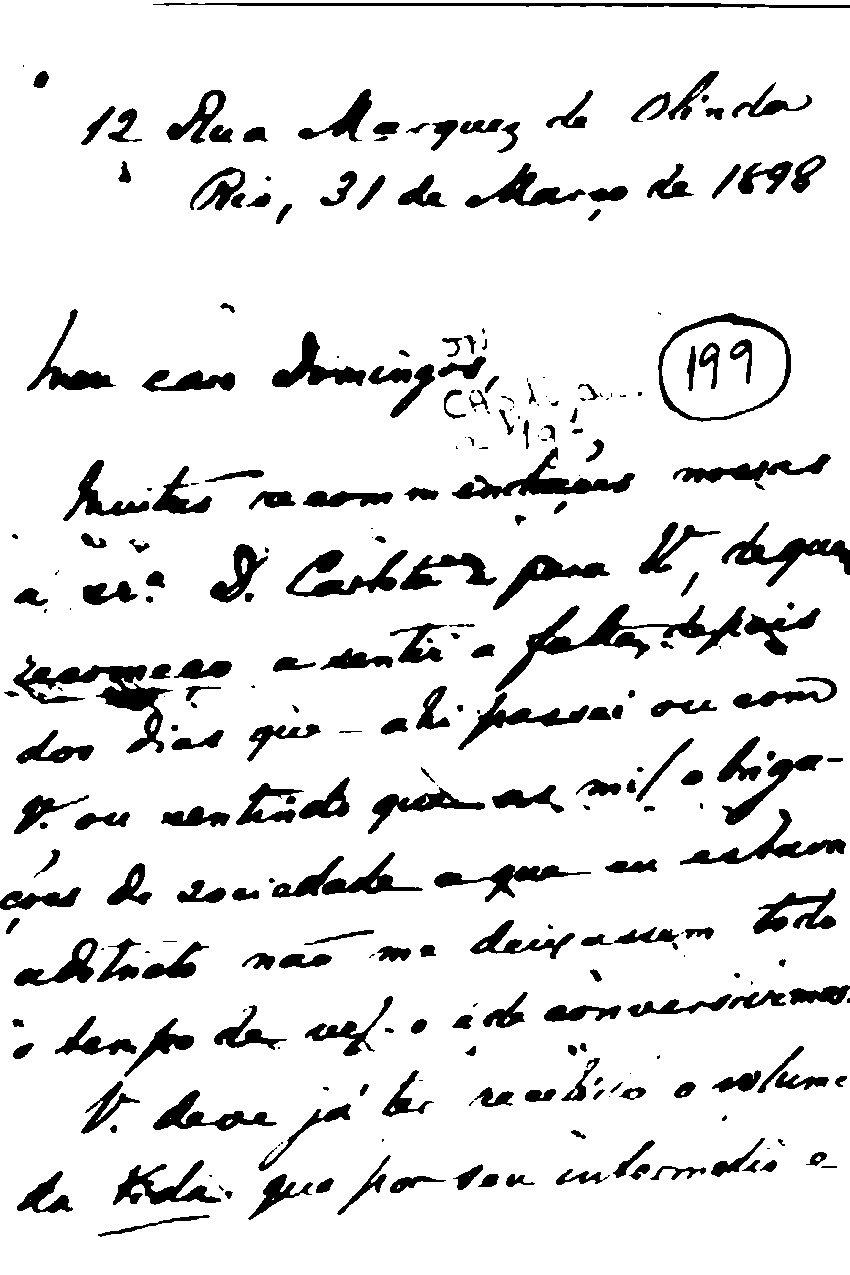 12 Rua Marquez de Olinda
Rio, 31 de Março de 1898
Meu caro Domingos,
199
Muitas recommendações nossas
a sra. D. Carlota e para V, de quem
recomeço a sentir a falta, depois
dos dias que ahi passei ou com
V. ou sentindo que as mil obriga-
ções de sociedade a que eu estava
adstricto não me deixassem todo
o tempo de vel-o e de conversarmos.
V. deve já ter recebido o volume
da Vida que por seu intermedio e